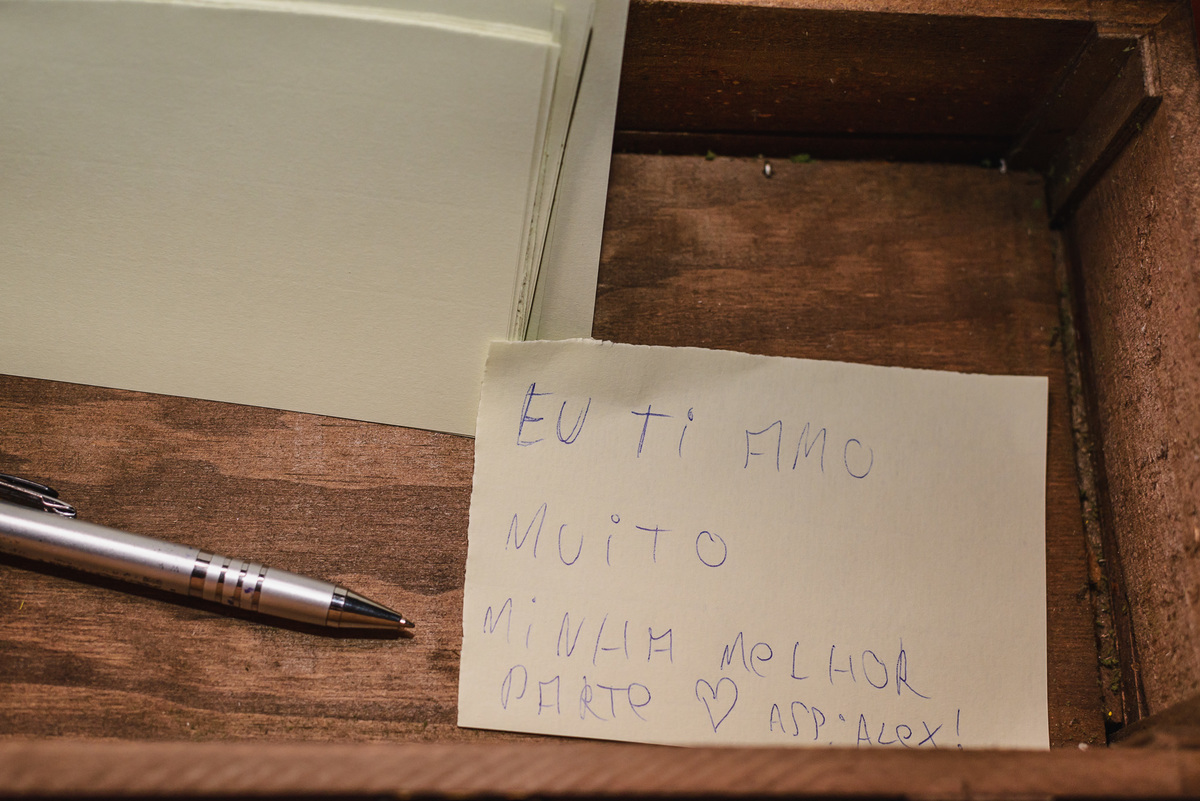 EU Ti AMO
MUiTO
MiNHA MeLHOR
PARTe ♡ ASP:ALeX!